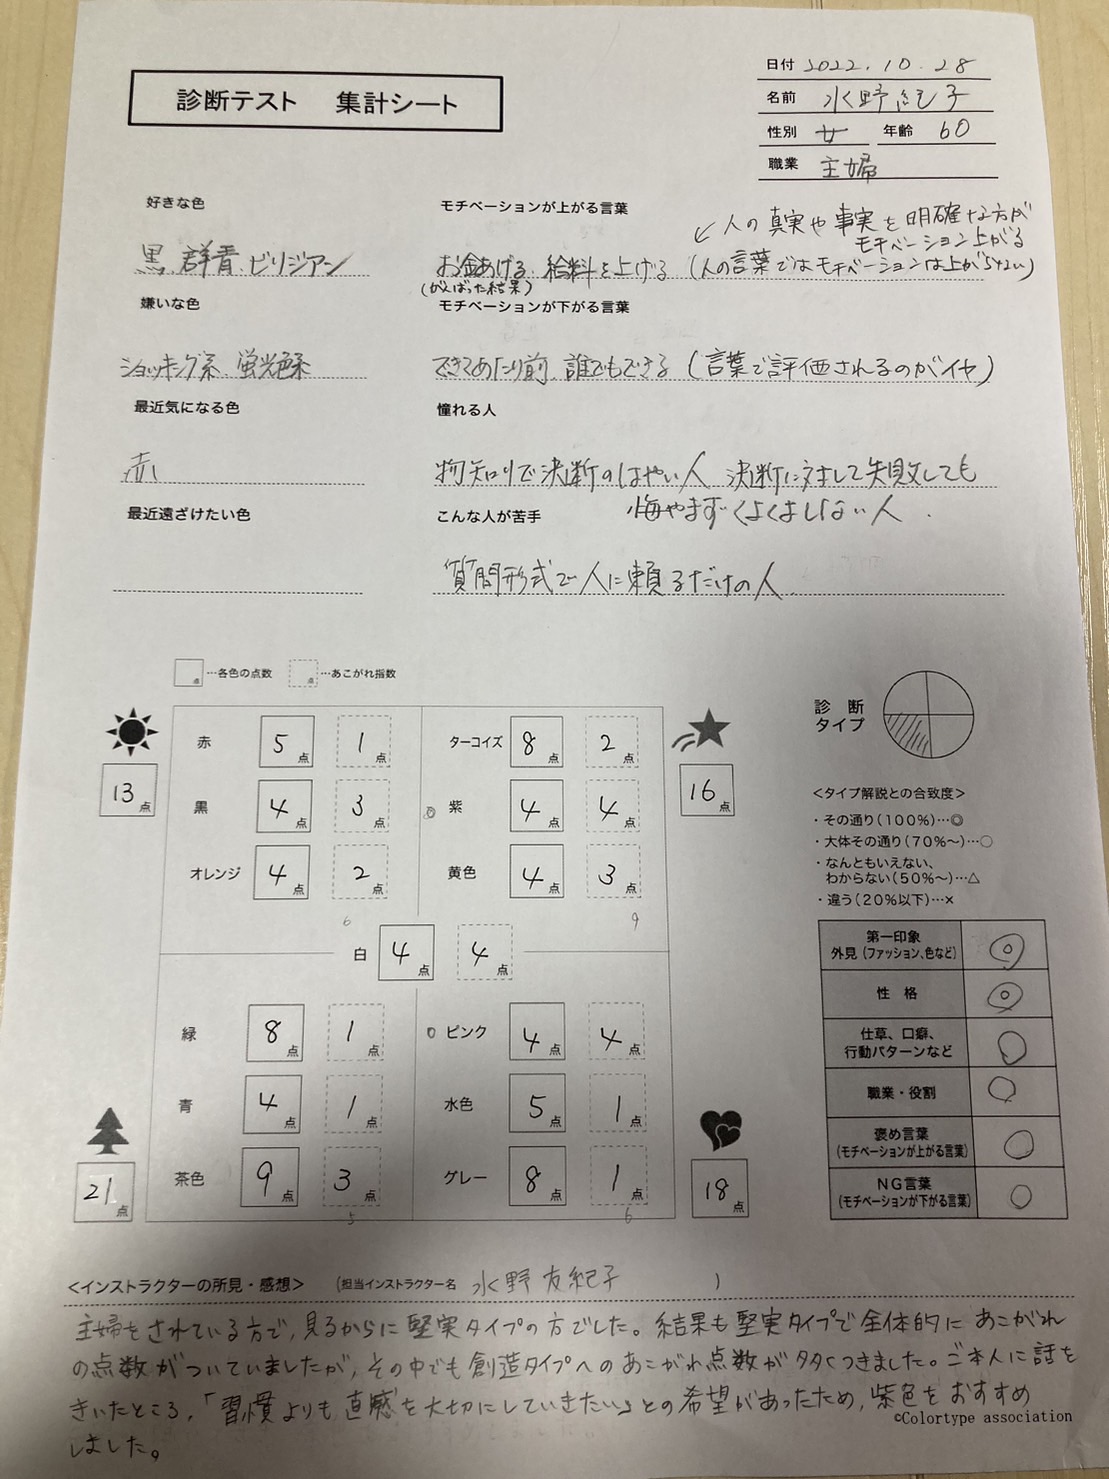 診断テスト　集計シート
日付 2022.10.28
名前 水野紀子
性別 女 年齢 60
職業 主婦
好きな色
黒、群青、ビリジアン
モチベーションが上がる言葉
↙人の真実や事実を明確な方が
モチベーション上がる
お金あげる、給料を上げる (人の言葉ではモチベーションは上がらない)
(がんばった結果)
嫌いな色
ショッキング系、蛍光色系
モチベーションが下がる言葉
できてあたり前、誰でもできる (言葉で評価されるのがイヤ)
最近気になる色
赤
憧れる人
物知りで決断のはやい人 決断に対して失敗しても
悔やまずくよくよしない人.
最近遠ざけたい色
こんな人が苦手
質問形式で人に頼るだけの人
点 …各色の点数 点 …あこがれ指数
13点
赤 5点 1点
黒 4点 3点
オレンジ 4点 2点
6
16点
ターコイズ 8点 2点
紫 4点 4点
黄色 4点 3点
9
白 4点 4点
21点
緑 8点 1点
青 4点 1点
茶色 9点 3点
5
18点
ピンク 4点 4点
水色 5点 1点
グレー 8点 1点
6
診断
タイプ
<タイプ解説との合致度>
・その通り(100%)…◎
・大体その通り(70%〜)…○
・なんともいえない、
わからない(50%〜)…△
・違う(20%以下)…×
第一印象
外見(ファッション、色など) ◎
性格 ◎
仕草、口癖、
行動パターンなど ○
職業・役割 ○
褒め言葉
(モチベーションが上がる言葉) ○
NG言葉
(モチベーションが下がる言葉) ○
<インストラクターの所見・感想> (担当インストラクター名 水野友紀子 )
主婦をされている方で、見るからに堅実タイプの方でした。結果も堅実タイプで全体的にあこがれ
の点数がついていましたが、その中でも創造タイプへのあこがれ点数が多くつきました。ご本人に話を
きいたところ、「習慣よりも直感を大切にしていきたい」との希望があったため、紫色をおすすめ
しました。
©Colortype association